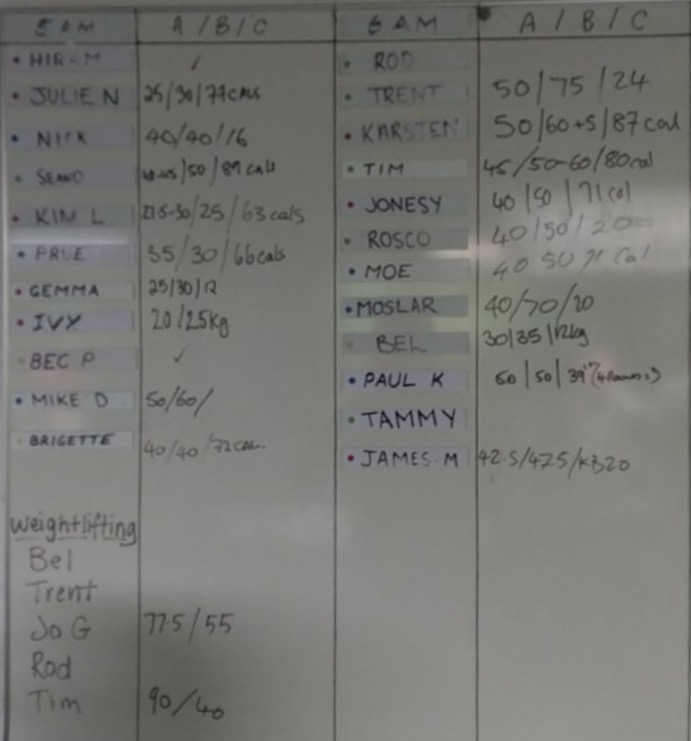 5 AM A / B / C
• HIRAM ✓
• JULIE N 25/30/77 CALS
• NICK 40/40/16
• /50/89 cals
• KIM L 27.5-30/25/63 cals
• PRUE 35/30/66 cals
• GEMMA 25/30/12
• IVY 20/25kg
• BEC P ✓
• MIKE D 50/60/
• BRIGETTE 40/40/72 CAL.
Weightlifting
Bel
Trent
Jo G 77.5/55
Rod
Tim 90/40
6 AM A / B / C
• ROD
• TRENT 50/75/24
• KARSTEN 50/60+5/87 cal
• TIM 45/50-60/80 cal
• JONESY 40/50/71 cal
• ROSCO 40/50/20
• MOE 40 50 71 Cal
• MOSLAR 40/70/20
• BEL 30/35/12kg
• PAUL K 50/50/39
• TAMMY
• JAMES.M 42.5/47.5/KB20